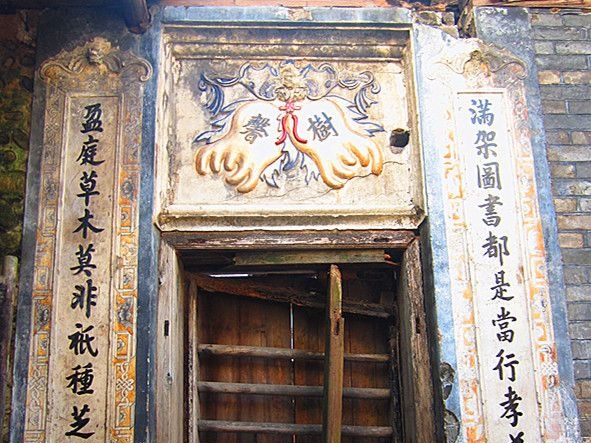 樹
滿架圖書都是當行孝
盈庭草木莫非祇種芝